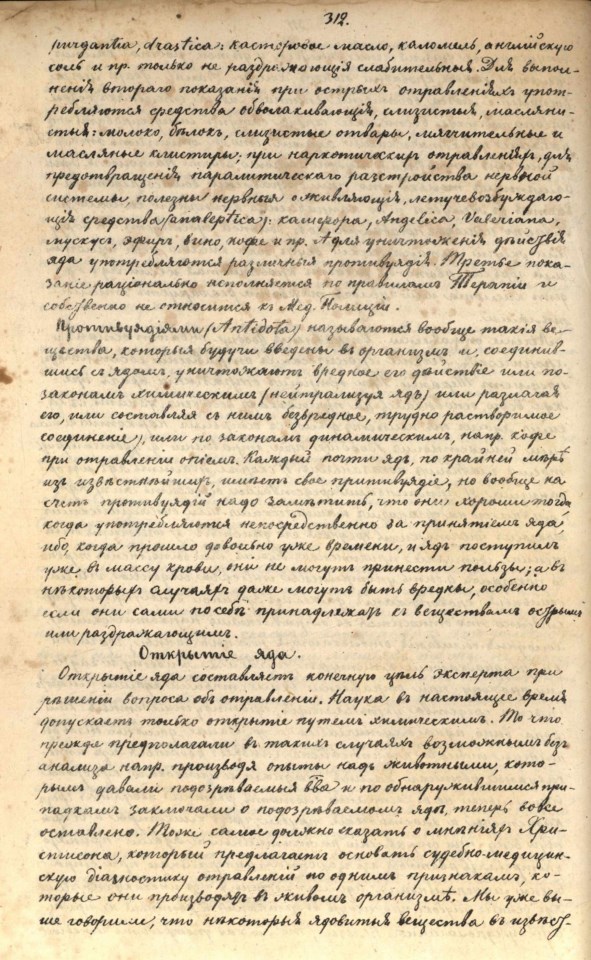 312.
purgantia, drastica: касторовое масло, каломель, английскую
соль и пр. только не раздражающія слабительныя. Для выпол-
ненія втораго показанія при острыхъ отравленіяхъ упот-
ребляются средства обволакивающія, слизистыя, масляни-
стыя: молоко, бѣлокъ, слизистые отвары, мягчительные и
масляные клистиры; при наркотическихъ отравленіяхъ, для
предотвращенія паралитическаго разстройства нервной
системы, полезны нервныя оживляющія, летучевозбуждаю-
щія средства (analeptica): камфора, Angelica, Valeriana,
мускусъ, эфиръ, вино, кофе и пр. А для уничтоженія дѣйствія
яда употребляются различныя противуядія. Третье пока-
заніе раціонально исполняется по правиламъ Терапіи и
собственно не относится къ Мед. Полиціи.
Противуядіями (Antidota) называются вообще такія ве-
щества, которыя будучи введены въ организмъ и, соединив-
шись съ ядомъ, уничтожаютъ вредное его дѣйствіе или по
законамъ химическимъ (нейтрализуя ядъ) или разлагая
его, или составляя съ нимъ безвредное, трудно растворимое
соединеніе), или по законамъ динамическимъ, напр. кофе
при отравленіи опіемъ. Каждый почти ядъ, по крайней мѣрѣ
изъ извѣстнѣйшихъ, имѣетъ свое противуядіе, но вообще на
счетъ противуядій надо замѣтить, что они хороши тогда
когда употребляются непосредственно за принятіемъ яда,
ибо, когда прошло довольно уже времени, и ядъ поступилъ
уже въ массу крови, они не могутъ принести пользы; а въ
нѣкоторыхъ случаяхъ даже могутъ быть вредны, особенно
если они сами по себѣ принадлежатъ къ веществамъ острымъ
или раздражающимъ.
Открытіе яда.
Открытіе яда составляетъ конечную цѣль эксперта при
рѣшеніи вопроса объ отравленіи. Наука въ настоящее время
допускаетъ только открытіе путемъ химическимъ. То что
прежде предполагали въ такихъ случаяхъ возможнымъ безъ
анализа напр. производя опыты надъ животными, кото-
рымъ давали подозрѣваемыя вва и по обнаружившимся при-
падкамъ заключали о подозрѣваемомъ ядѣ, теперь вовсе
оставлено. Тоже самое должно сказать о мнѣніяхъ Хри-
стисона, который предлагаетъ основать судебно-медицин-
скую діагностику отравленій по однимъ признакамъ, ко-
торые они производятъ въ живомъ организмѣ. Мы уже вы-
ше говорили, что нѣкоторыя ядовитыя вещества въ извѣст-